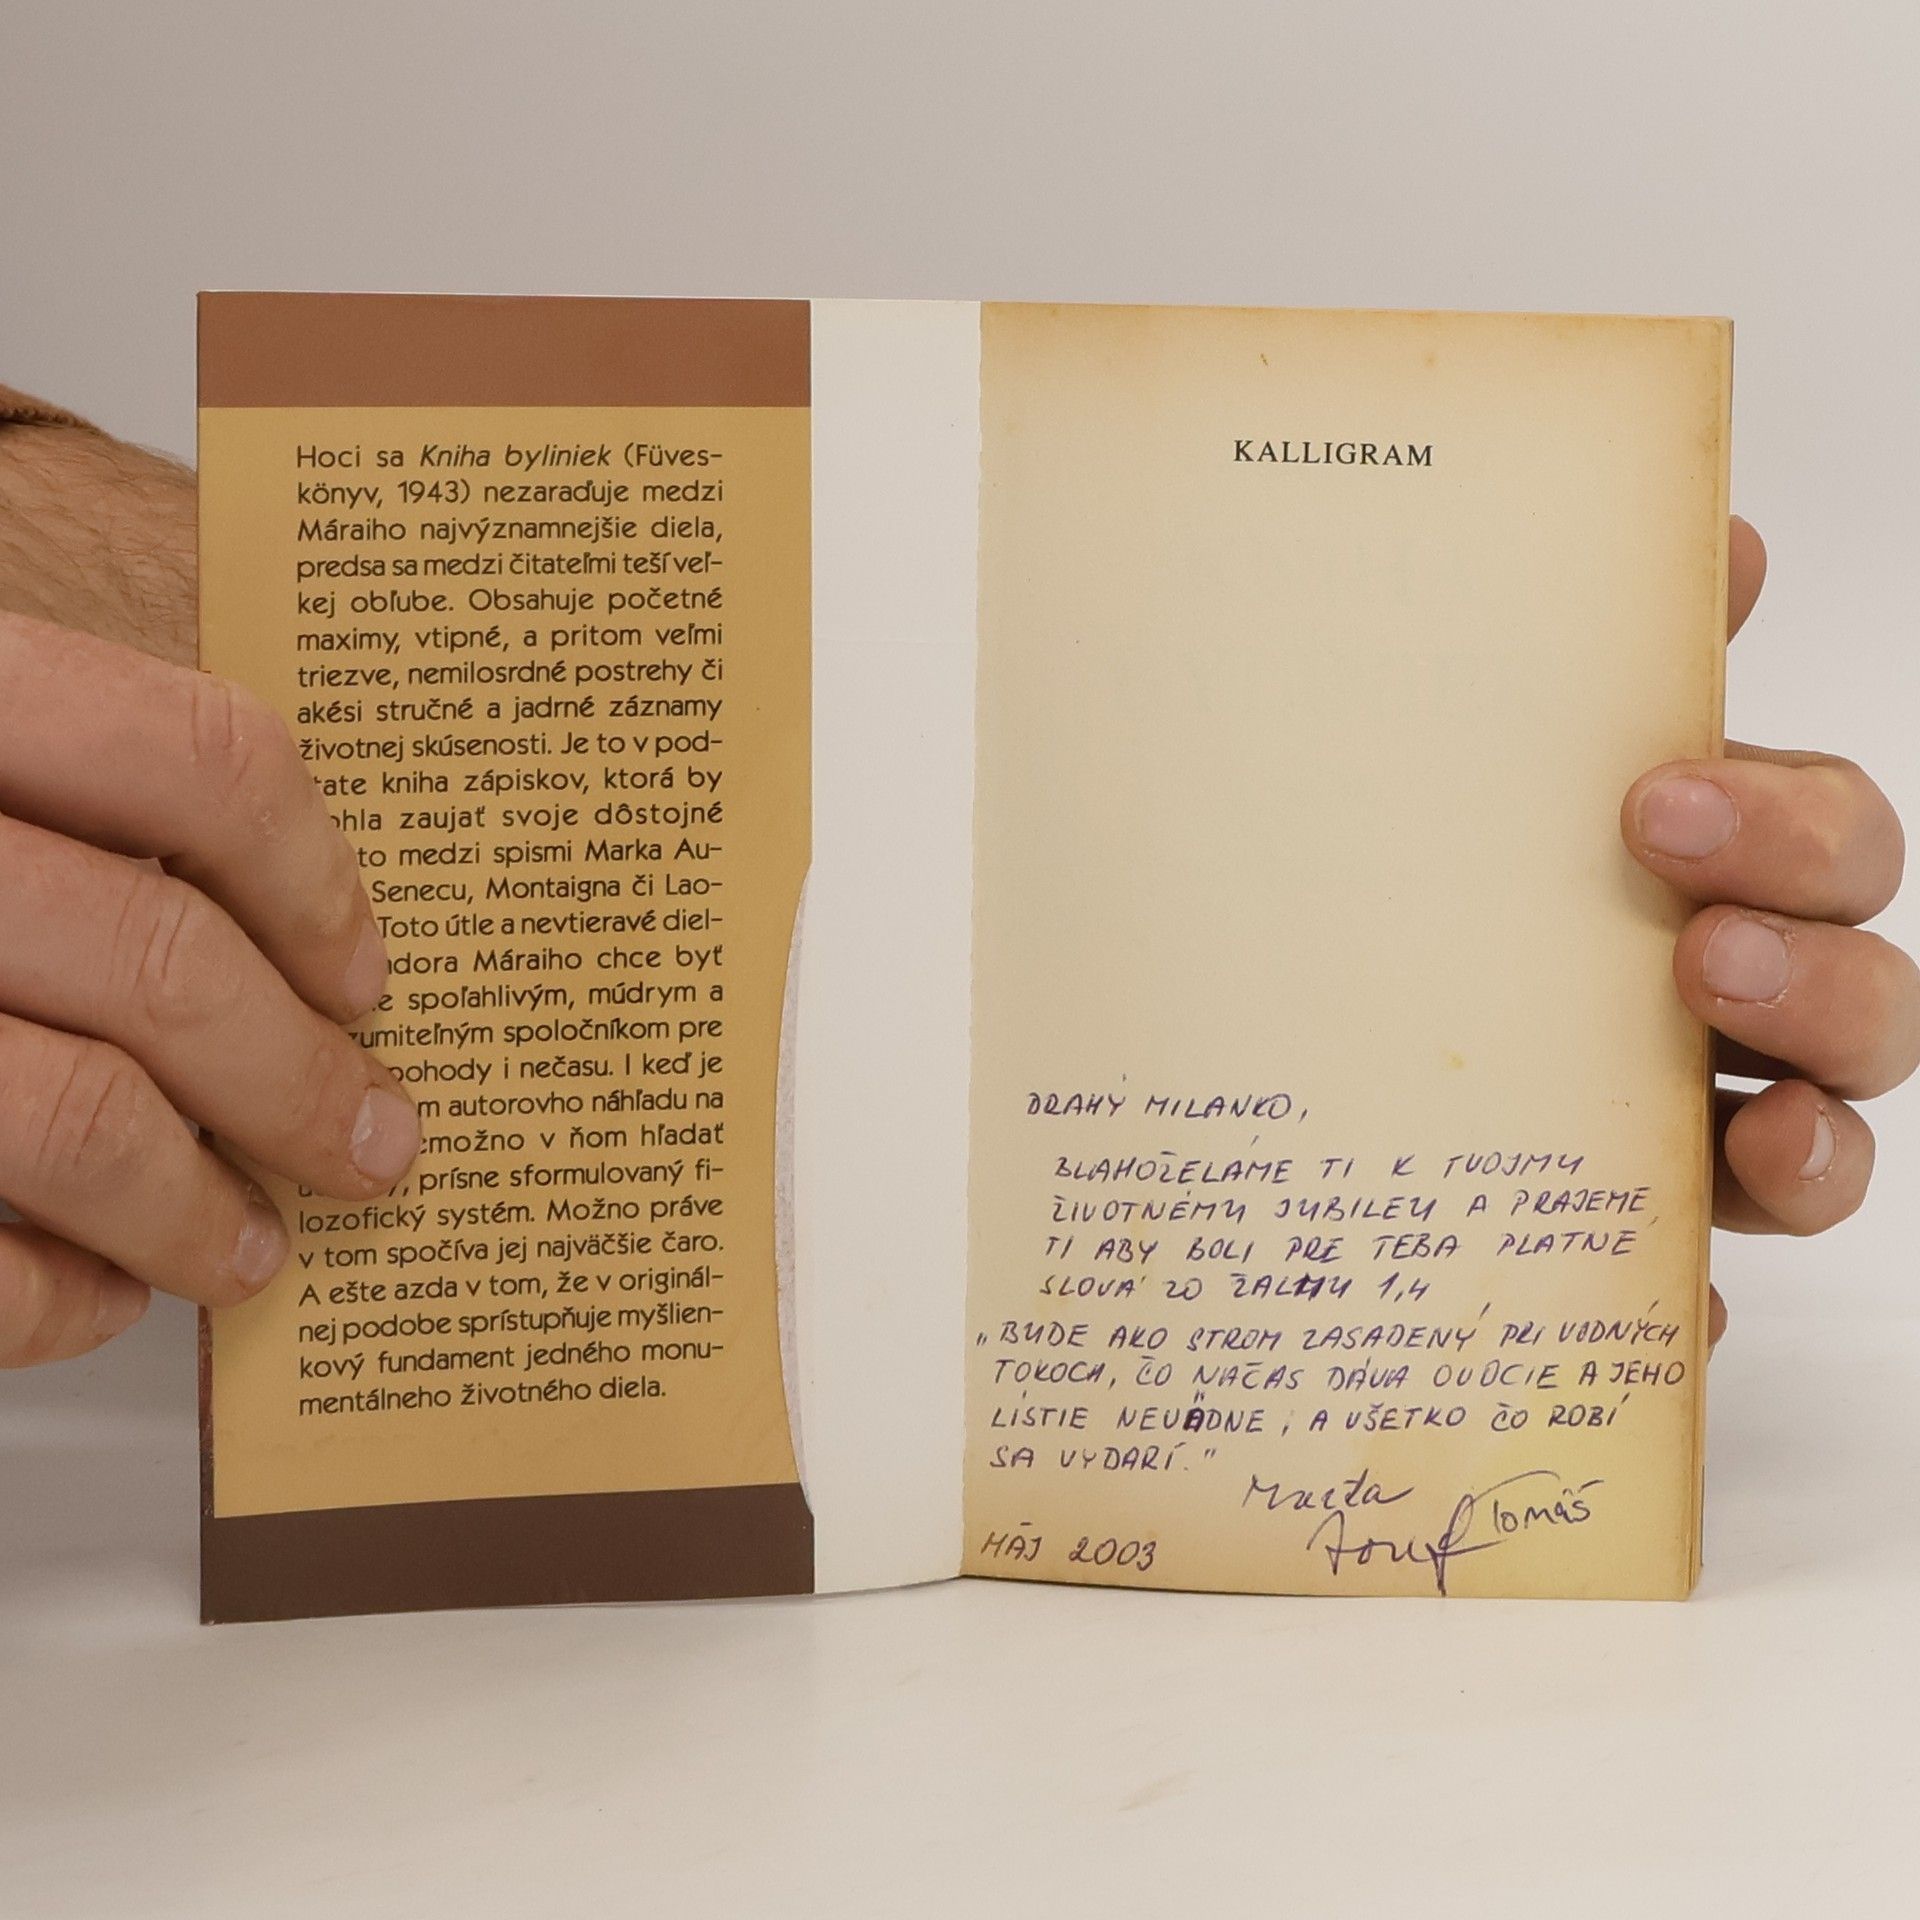 Hoci sa Kniha byliniek (Füves-
könyv, 1943) nezaraďuje medzi
Máraiho najvýznamnejšie diela,
predsa sa medzi čitateľmi teší veľ-
kej obľube. Obsahuje početné
maximy, vtipné, a pritom veľmi
triezve, nemilosrdné postrehy či
akési stručné a jadrné záznamy
životnej skúsenosti. Je to v pod-
tate kniha zápiskov, ktorá by
ohla zaujať svoje dôstojné
to medzi spismi Marka Au-
Senecu, Montaigna či Lao-
Toto útle a nevtieravé diel-
ndora Máraiho chce byť
e spoľahlivým, múdrym a
zumiteľným spoločníkom pre
pohody i nečasu. I keď je
m autorovho náhľadu na
emožno v ňom hľadať
prísne sformulovaný fi-
lozofický systém. Možno práve
v tom spočíva jej najväčšie čaro.
A ešte azda v tom, že v originál-
nej podobe sprístupňuje myšlien-
kový fundament jedného monu-
mentálneho životného diela.
KALLIGRAM
DRAHÝ MILANKO,
BLAHOŽELÁME TI K TVOJMU
ŽIVOTNÉMU JUBILEU A PRAJEME
TI ABY BOLI PRE TEBA PLATNÉ
SLOVÁ ZO ŽALMU 1,4
„BUDE AKO STROM ZASADENÝ PRI VODNÝCH
TOKOCH, ČO NAČAS DÁVA OVOCIE A JEHO
LÍSTIE NEVÄDNE, A VŠETKO ČO ROBÍ
SA VYDARÍ."
Marta
Jozef Tomáš
MÁJ 2003